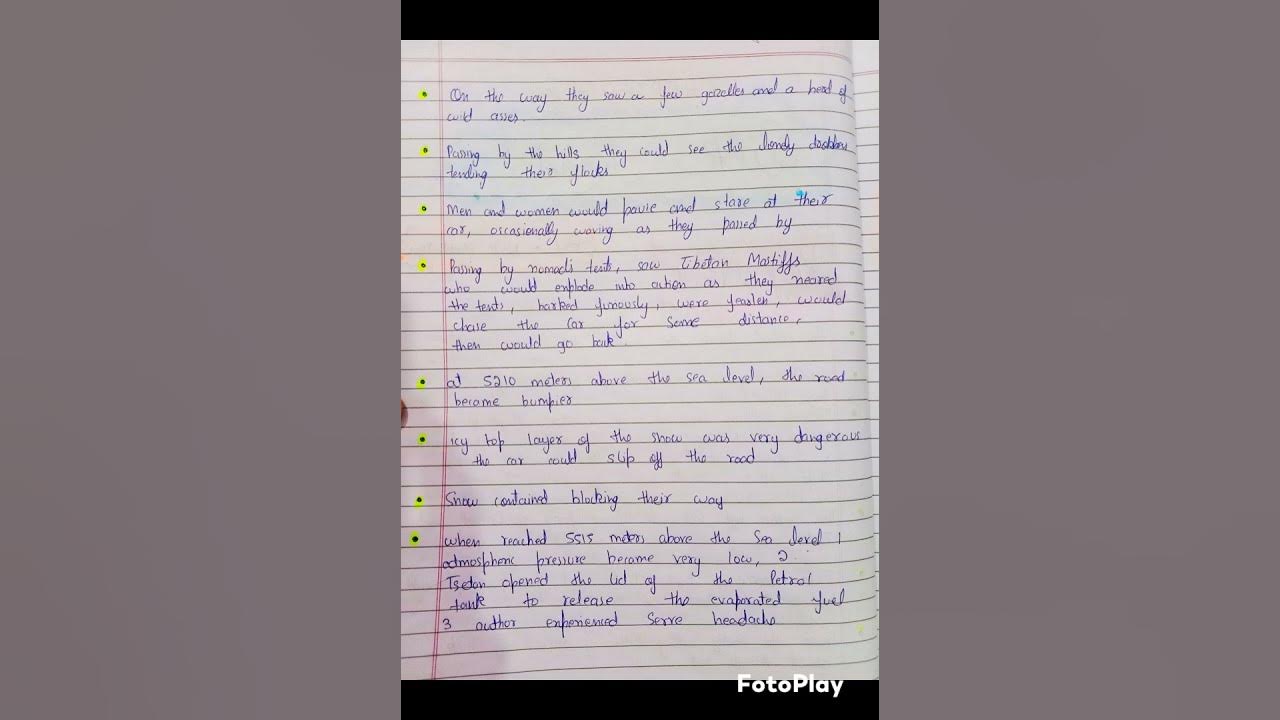 On the way they saw a few gazelles and a head of
wild asses.
Passing by the hills they could see the
tending their flocks
Men and women would pause and stare at their
car, occasionally waving as they passed by
Passing by nomad's tents, saw Tibetan Mastiffs
who would explode into action as they neared
the tents, barked furiously, were fearless, would
chase the car for some distance,
then would go back.
at 5210 meters above the sea level, the road
became bumpier
icy top layer of the snow was very dangerous
the car could slip off the road
Snow contained blocking their way
when reached 5515 meters above the sea level 1
atmospheric pressure became very low, 2
Tsetan opened the lid of the Petrol
tank to release the evaporated fuel
3 author experienced headache
FotoPlay